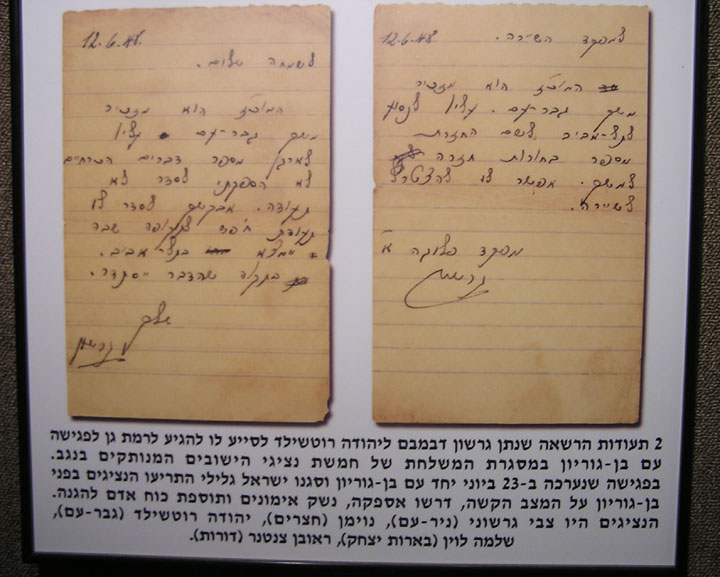 למפקד השיירה. 12.6.48
המוכ"ז הוא מזכיר
משק גבר-עם. עליו לנסוע
לתל-אביב לשם החזרת
מספר בחורות חזרה
למשק. אפשר לו להצטרף
לשיירה.
מפקד פלוגה א'
גרשון
12.6.48.
לשמחה שלום.
המוכ"ז הוא מזכיר
משק גבר-עם עליו
לארגן מספר דברים הכרחיים
לא הספקתי לסדר לו
תעודה. אבקשך לסדר לו
תעודת לתקופה שבה
ימצא בתל-אביב.
בתקוה שהדבר יסתדר.
שלך
גרשון
2 תעודות הרשאה שנתן גרשון דבמבם ליהודה רוטשילד לסייע לו להגיע לרמת גן לפגישה
עם בן-גוריון במסגרת המשלחת של חמשת נציגי הישובים המנותקים בנגב.
בפגישה שנערכה ב-23 ביוני יחד עם בן-גוריון וסגנו ישראל גלילי התריעו הנציגים בפני
בן-גוריון על המצב הקשה, דרשו אספקה, נשק אימונים ותוספת כוח אדם להגנה.
הנציגים היו צבי גרשוני (ניר-עם), נוימן (חצרים), יהודה רוטשילד (גבר-עם),
שלמה לוין (בארות יצחק), ראובן צנטנר (דורות).